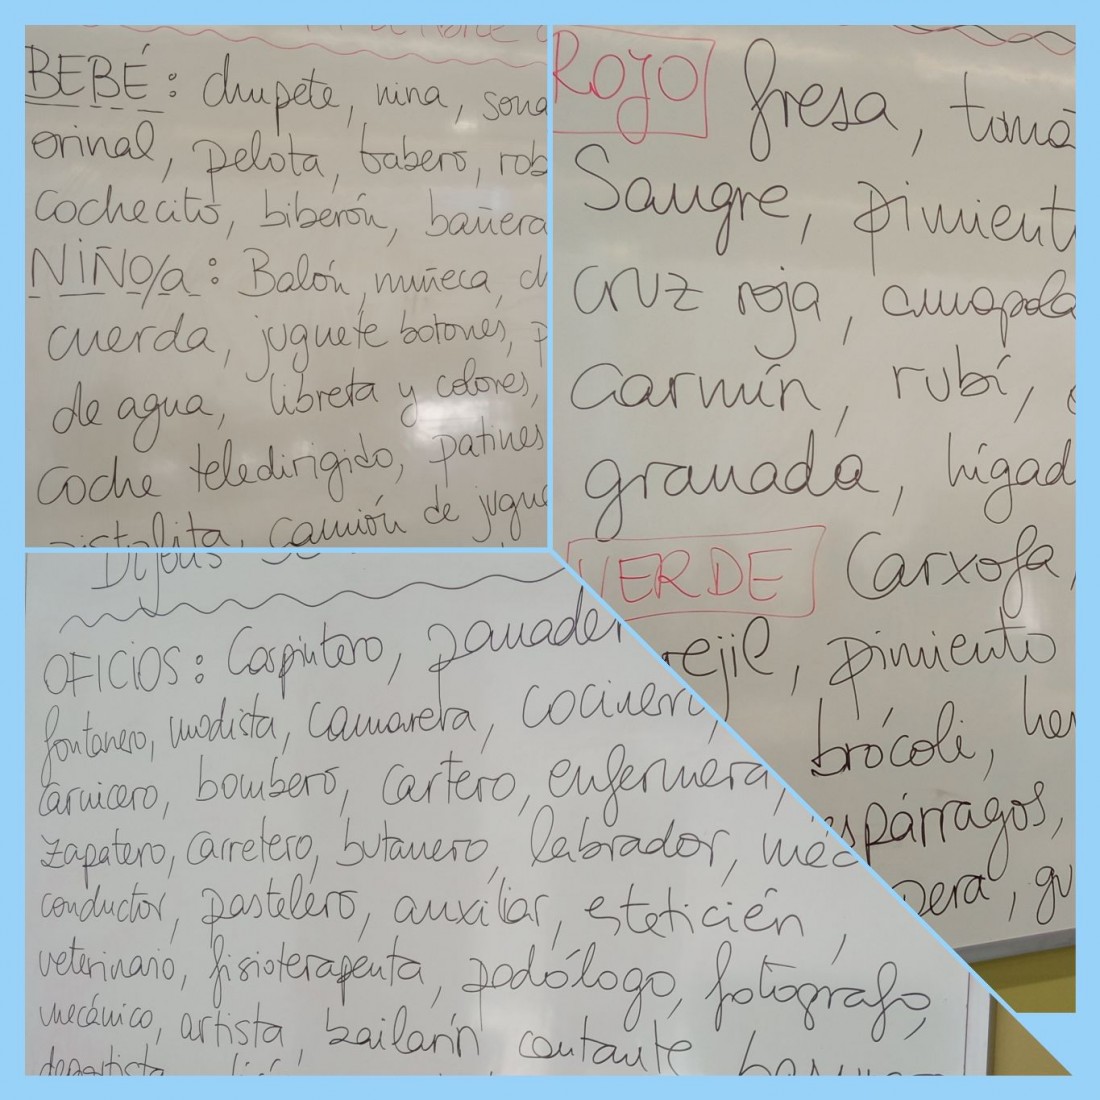 BEBÉ: chupete, nina, sona
orinal, pelota, babero, rob
cochecito, biberón, bañera
NIÑO/a: Balón, muñeca,
cuerda, juguete botones, p
de agua, libreta y colores,
coche teledirigido, patines
pistolita, camión de jugue
ROJO fresa, toma
Sangre, pimient
cruz roja, amapola
Carmín, rubí,
granada, hígad
VERDE Carxofa,
rejil, pimiento
brócoli, he
espárragos,
pera, gu
Dijous
OFICIOS: Carpintero, panader
fontanero, modista, camarera, cocinero,
carnicero, bombero, cartero, enfermera,
zapatero, carretero, butanero, labrador, méd
conductor, pastelero, auxiliar, esteticién,
veterinario, fisioterapeuta, podólogo, fotógrafo,
mecánico, artista, bailarín cantante
deportista